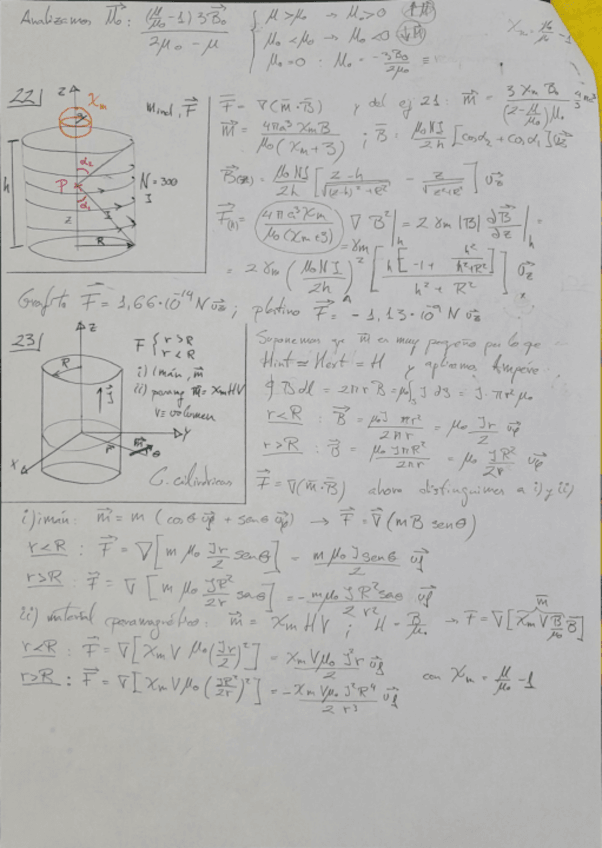 Analizamos M₀: (μ/μ₀ -1) 3B₀ / 2μ₀ - μ { μ > μ₀ → M₀ > 0 ↑M
μ₀ < μ₀ → M₀ < 0 ↓M
μ₀ = 0 : M₀ = -3B₀/2μ₀ =
22|
z χm
Mind, F
h α₂ P α₁ z R N = 300 I
F = ∇(m·B) y del ej 21: m = 3 χm B₀ / (2-μ/μ₀) μ₀ 4/3 πa³
m = 4πa³ χm B / μ₀(χm+3) ; B = μ₀NI/2h [cosα₂ + cosα₁] uz
B(z) = μ₀NI/2h [ z-h / √((z-h)²+R²) - z / √(z²+R²) ] uz
F(h) = (4πa³χm / μ₀(χm+3)) = γm ∇B²|h = 2γm |B| ∂B/∂z |h =
= 2γm (μ₀NI/2h)² [ h[-1 + h²/(h²+R²)] / h²+R² ] uz
Grafito F = 1,66·10⁻¹⁴ N uz ; platino F = -1,13·10⁻⁹ N uz
23|
z R J y x m r θ
F { r > R
r < R
i) imán, m
ii) paramg m = χm HV
V = volumen
C. cilíndricas
Suponemos que m es muy pequeño por lo que
Hint = Hext = H y aplicamos Ampére:
∮ B dl = 2πr B = μ₀∫ J dS = J·πr²μ₀
r<R : B = μ₀J πr² / 2πr = μ₀ Jr/2 uφ
r>R : B = μ₀ JπR² / 2πr = μ₀ JR²/2r uφ
F = ∇(m·B) ahora distinguimos a i) y ii)
i) imán: m = m (cosθ uρ + senθ uφ) → F = ∇(mB senθ)
r<R : F = ∇[m μ₀ Jr/2 senθ] = mμ₀ J senθ / 2 uρ
r>R : F = ∇[m μ₀ JR²/2r senθ] = - mμ₀ JR² senθ / 2r² uρ
ii) material paramagnético: m = χm HV ; H = B/μ₀ → F = ∇[χm V B/μ₀ B] m
r<R : F = ∇[χm V μ₀ (Jr/2)²] = χm V μ₀ J² r / 2 uρ
r>R : F = ∇[χm V μ₀ (JR²/2r)²] = - χm V μ₀ J² R⁴ / 2 r³ uρ
con χm = μ/μ₀ - 1